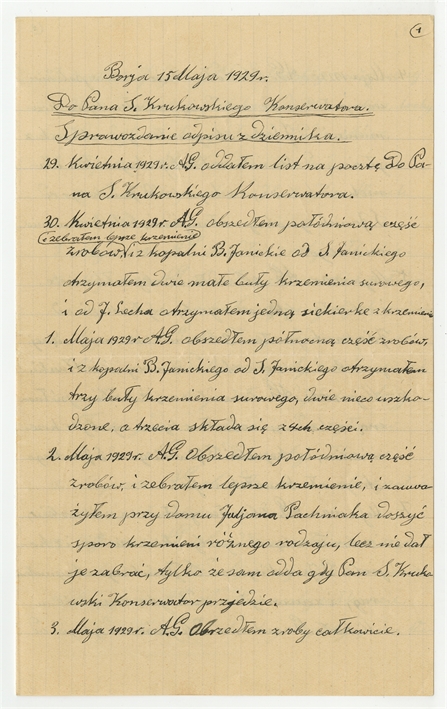 1
Borja 15 Maja 1929r.
Do Pana S. Krukowskiego Konserwatora.
Sprawozdanie odpisu z dziennika.
29. Kwietnia 1929r. AG. oddałem list na pocztę Do Pa-
na S. Krukowskiego Konserwatora.
30. Kwietnia 1929r. AG. obszedłem połódniową część
i zebrałem lepsze krzemienie
zrobów, i z kopalni B. Janickie od S. Janickiego
otrzymałem dwie małe buły krzemienia surowego,
i od J. Lecha otrzymałem jedną siekierkę z krzemienia
1. Maja 1929r AG. obszedłem północną część zrobów,
i z kopalni B. Janickiego od S. Janickiego otrzymałem
trzy buły krzemienia surowego, dwie nieco uszko-
dzone, a trzecia składa się z 4ch części.
2. Maja 1929r. AG. Obszedłem połódniową część
zrobów, i zebrałem lepsze krzemienie, i zauwa-
żyłem przy domu Juljana Pachniaka doszyć
sporo krzemieni różnego rodzaju, lecz nie dał
je zabrać, tylko że sam odda gdy Pan S. Kruko
wski Konserwator przyjedzie.
3. Maja 1929r. AG. Obszedłem zroby całkowicie.